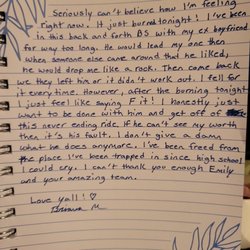 Seriously can't believe how I'm feeling
right now. It just burned tonight! I've been
in this back and forth BS with my ex boyfriend
for way too long. He would lead my one then
when someone else came around that he liked,
he would drop me like a rock. Then come back
when they left him or it didn't work out. I fell for
it every time. However, after the burning tonight
I just feel like saying F it! I honestly just
want to be done with him and get off of
this never ending ride. If he can't see my worth
then it's his fault. I don't give a damn
what he does anymore. I've been freed from
the place I've been trapped in since high school.
I could cry. I can't thank you enough Emily
and your amazing team.
Love yall!